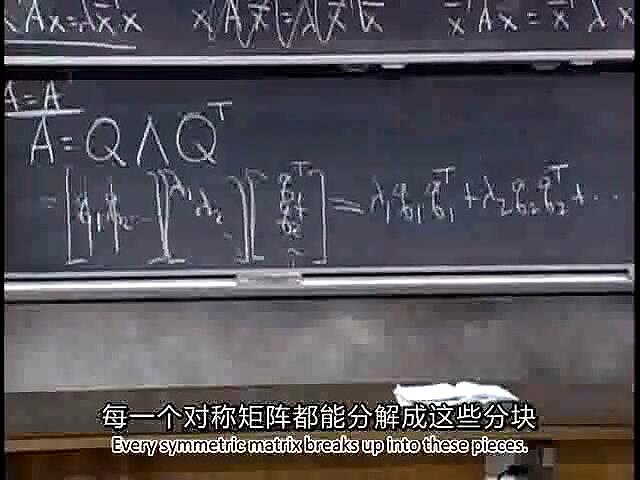 Ax=λx̄ᵀx
x̄ᵀAx = x̄ᵀλx
A=Aᵀ
A=QΛQᵀ
=[q₁ q₂ ...][λ₁ λ₂ ⋱][q₁ᵀ q₂ᵀ ⋮] = λ₁q₁q₁ᵀ+λ₂q₂q₂ᵀ+...
每一个对称矩阵都能分解成这些分块
Every symmetric matrix breaks up into these pieces.